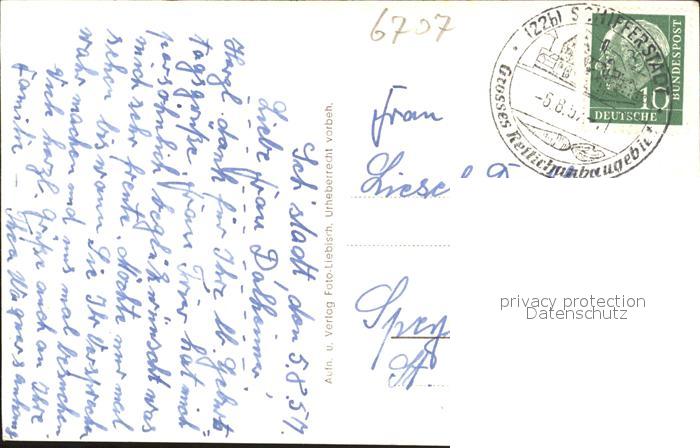 6707
(22b) SCHIFFERSTADT
-6.8.57
Grosses Rettichanbaugebiet
10
DEUTSCHE
BUNDESPOST
Sch'stadt, den 5.8.57.
Liebe Frau Dalheimer,
Herzl. Dank für Ihre lb. Geburts=
tagsgrüße. Frau Trier hat mich
persönlich beglückwünscht was
mich sehr freute. Möchte nur mal
sehen bis wann Sie Ihr Versprechen
wahr machen und uns mal besuchen.
Viele herzl. Grüße auch an Ihre
Familie
Aufn. u. Verlag Foto-Liebisch. Urheberrecht vorbeh.
Frau
Liesel
Spey
privacy protection
Datenschutz